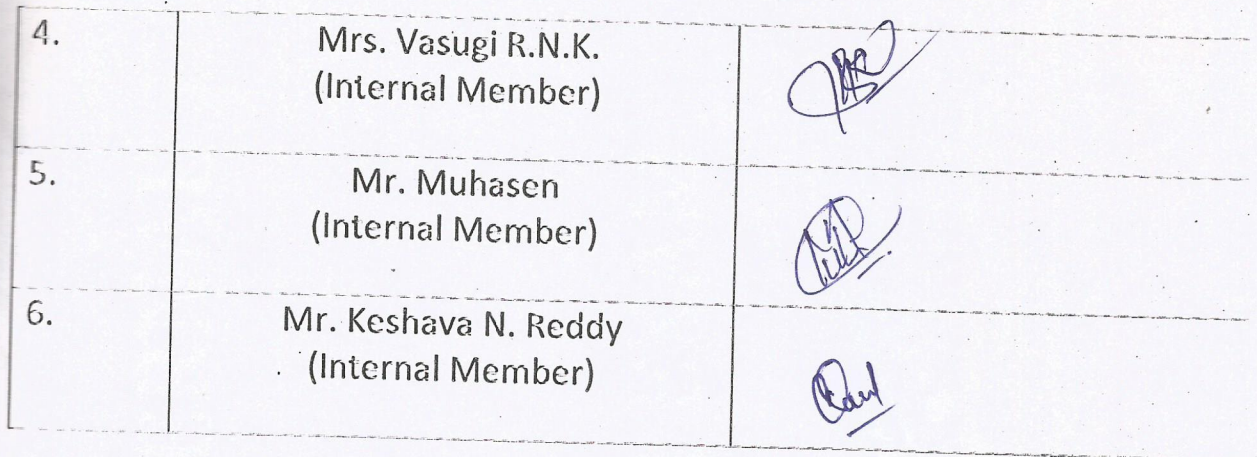 4.
Mrs. Vasugi R.N.K.
(Internal Member)
5.
Mr. Muhasen
(Internal Member)
6.
Mr. Keshava N. Reddy
(Internal Member)